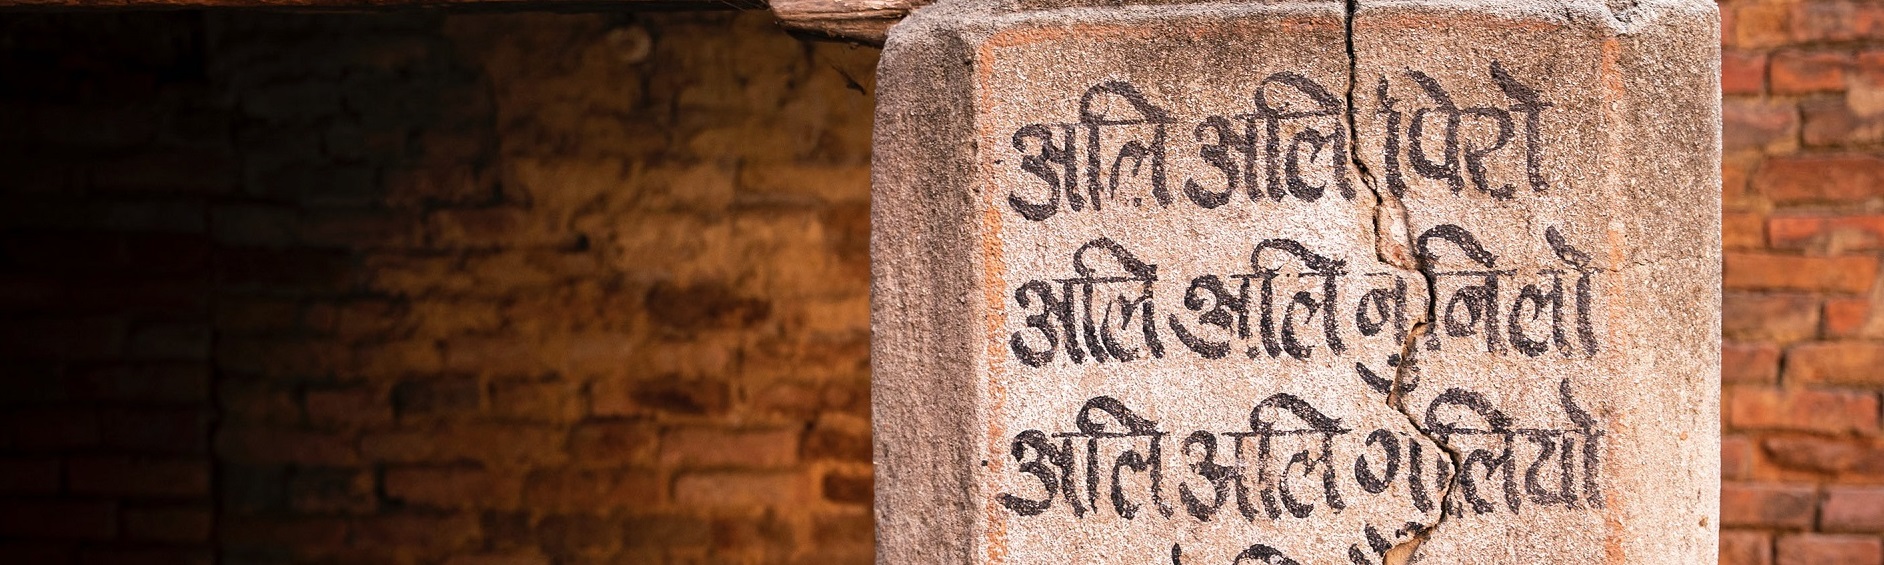 अलि अलि पिरो
अलि अलि नुनिलो
अलि अलि गुलियो